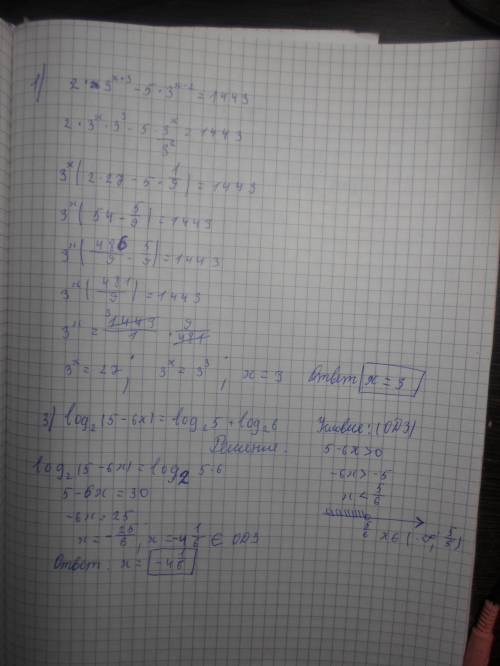 1) 2·3^(x+3) - 5·3^(x-2) = 1443
2·3^x·3^3 - 5·3^x/3^2 = 1443
3^x(2·27 - 5·1/9) = 1443
3^x(54 - 5/9) = 1443
3^x(486/9 - 5/9) = 1443
3^x(481/9) = 1443
3^x = 1443/1 · 9/481
3^x = 27; 3^x = 3^3; x = 3 Ответ x = 3
3) log₂(5-6x) = log₂5 + log₂6
Решение:
log₂(5-6x) = log₂ 5·6
5-6x = 30
-6x = 25
x = -25/6, x = -4 1/6 ∈ ОДЗ
Ответ: x = -4 1/6
Условие: (ОДЗ)
5-6x > 0
-6x > -5
x < 5/6
5/6
x ∈ (-∞;